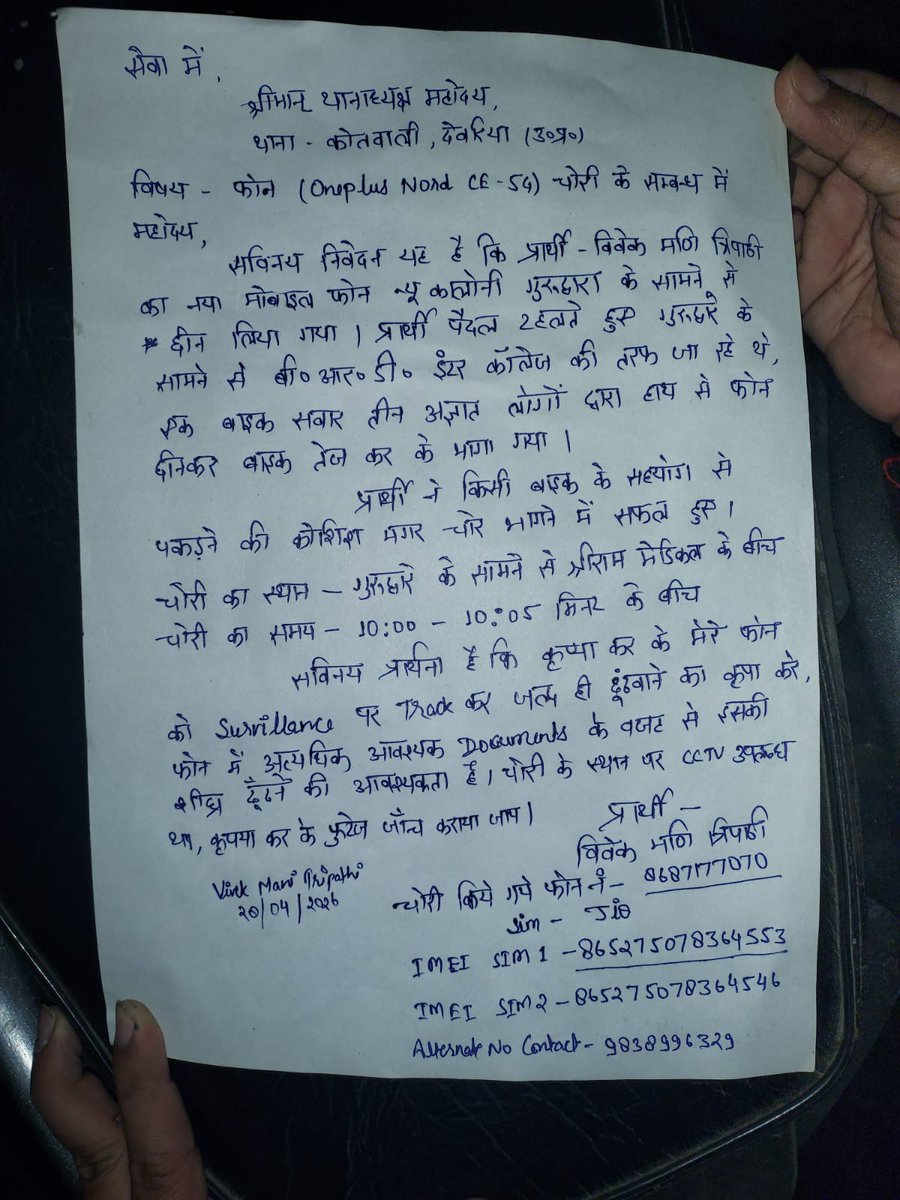 सेवा में,
श्रीमान् थानाध्यक्ष महोदय,
थाना - कोतवाली, देवरिया (उ०प्र०)
विषय - फोन (Oneplus Nord CE-5G) चोरी के सम्बन्ध में
महोदय,
सविनय निवेदन यह है कि प्रार्थी - विवेक मणि त्रिपाठी
का नया मोबाइल फोन न्यू कालोनी गुरुद्वारा के सामने से
छीन लिया गया। प्रार्थी पैदल टहलते हुए गुरुद्वारे के
सामने से बी०आर०डी० इंटर कॉलेज की तरफ जा रहे थे,
एक बाइक सवार तीन अज्ञात लोगों द्वारा हाथ से फोन
छीनकर बाइक तेज कर के भागा गया।
प्रार्थी ने किसी बाइक के सहयोग से
पकड़ने की कोशिश मगर चोर भागने में सफल हुए।
चोरी का स्थान - गुरुद्वारे के सामने से श्रीराम मेडिकल के बीच
चोरी का समय - 10:00 - 10:05 मिनट के बीच
सविनय प्रार्थना है कि कृप्या कर के मेरे फोन
को Survillance पर Track कर जल्द ही ढूंढवाने का कृपा करे,
फोन में अत्यधिक आवश्यक Documents के वजह से इसकी
शीघ्र ढूँढने की आवश्यकता है। चोरी के स्थान पर CCTV उपलब्ध
था, कृपया कर के फुटेज जाँच कराया जाय।
प्रार्थी -
विवेक मणि त्रिपाठी
Vivek Mani Tripathi
20/04/2026
चोरी किये गये फोन नं - 8687177070
Sim - Jio
IMEI SIM 1 - 865275078364553
IMEI SIM 2 - 865275078364546
Alternate No Contact - 9838996329